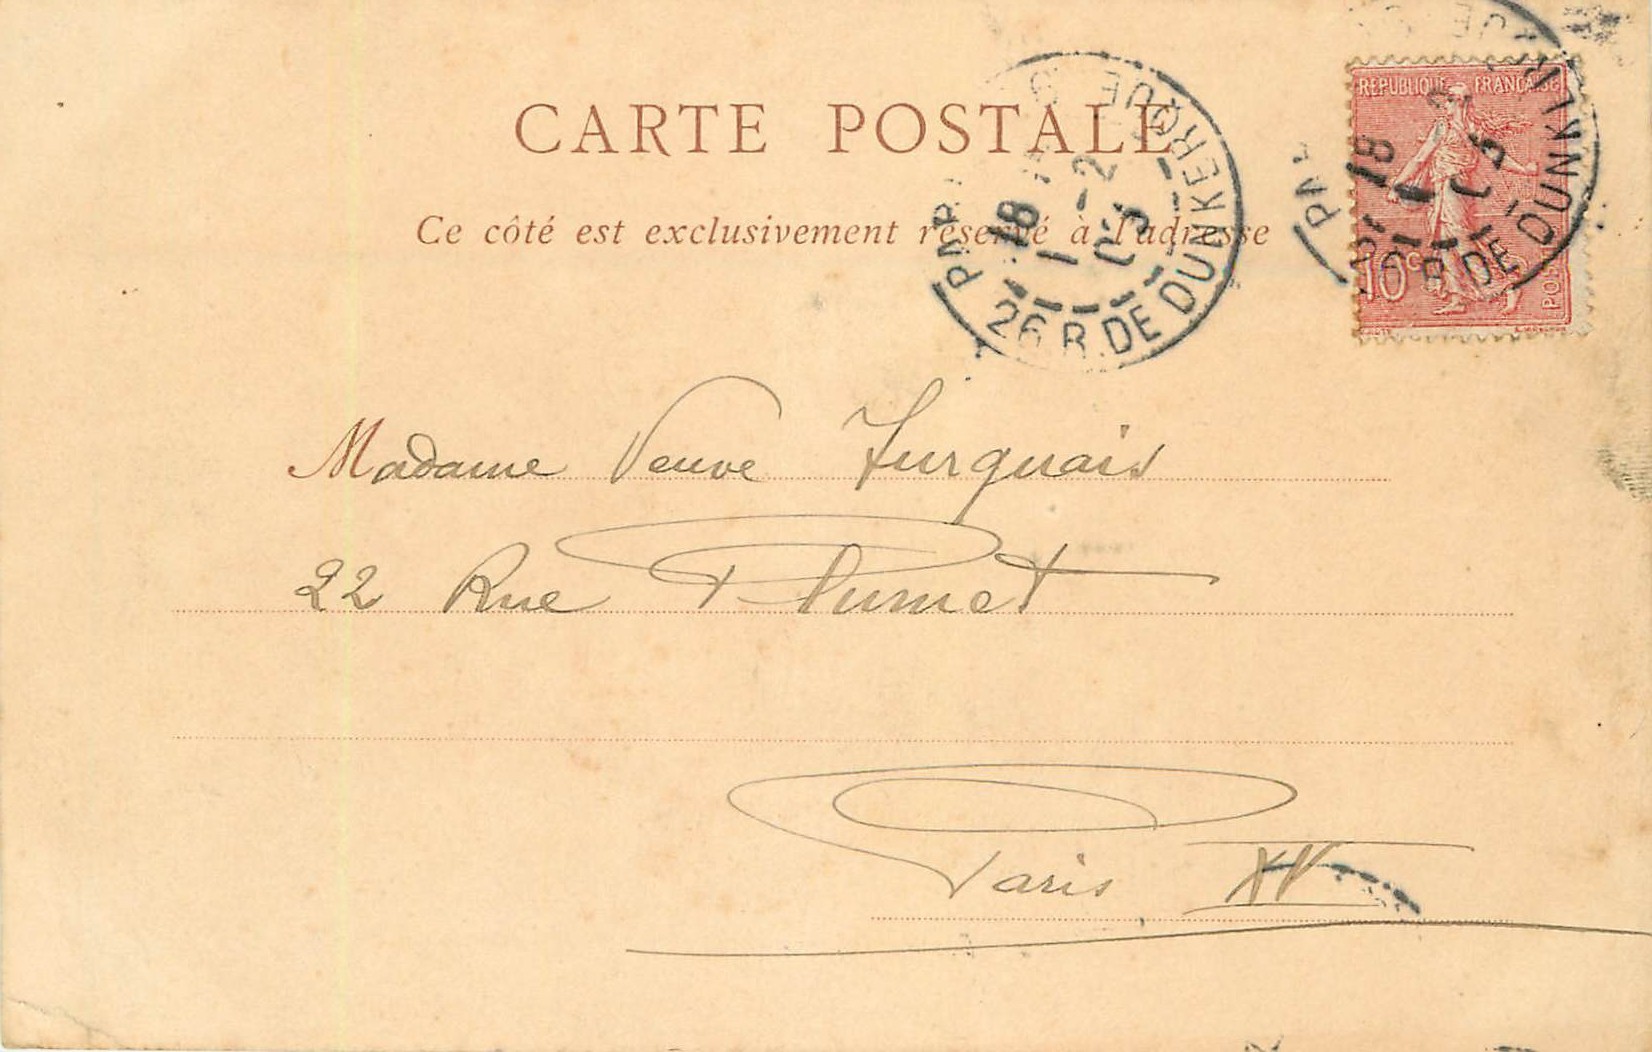 CARTE POSTALE
Ce côté est exclusivement réservé à l'adresse
PARIS 26 R. DE DUNKERQUE
18 1-2 05
REPUBLIQUE FRANÇAISE
10 c
POSTES
PARIS 26 R. DE DUNKERQUE
18 1-2 05
Madame Veuve Turquais
22 Rue Plumet
Paris XV